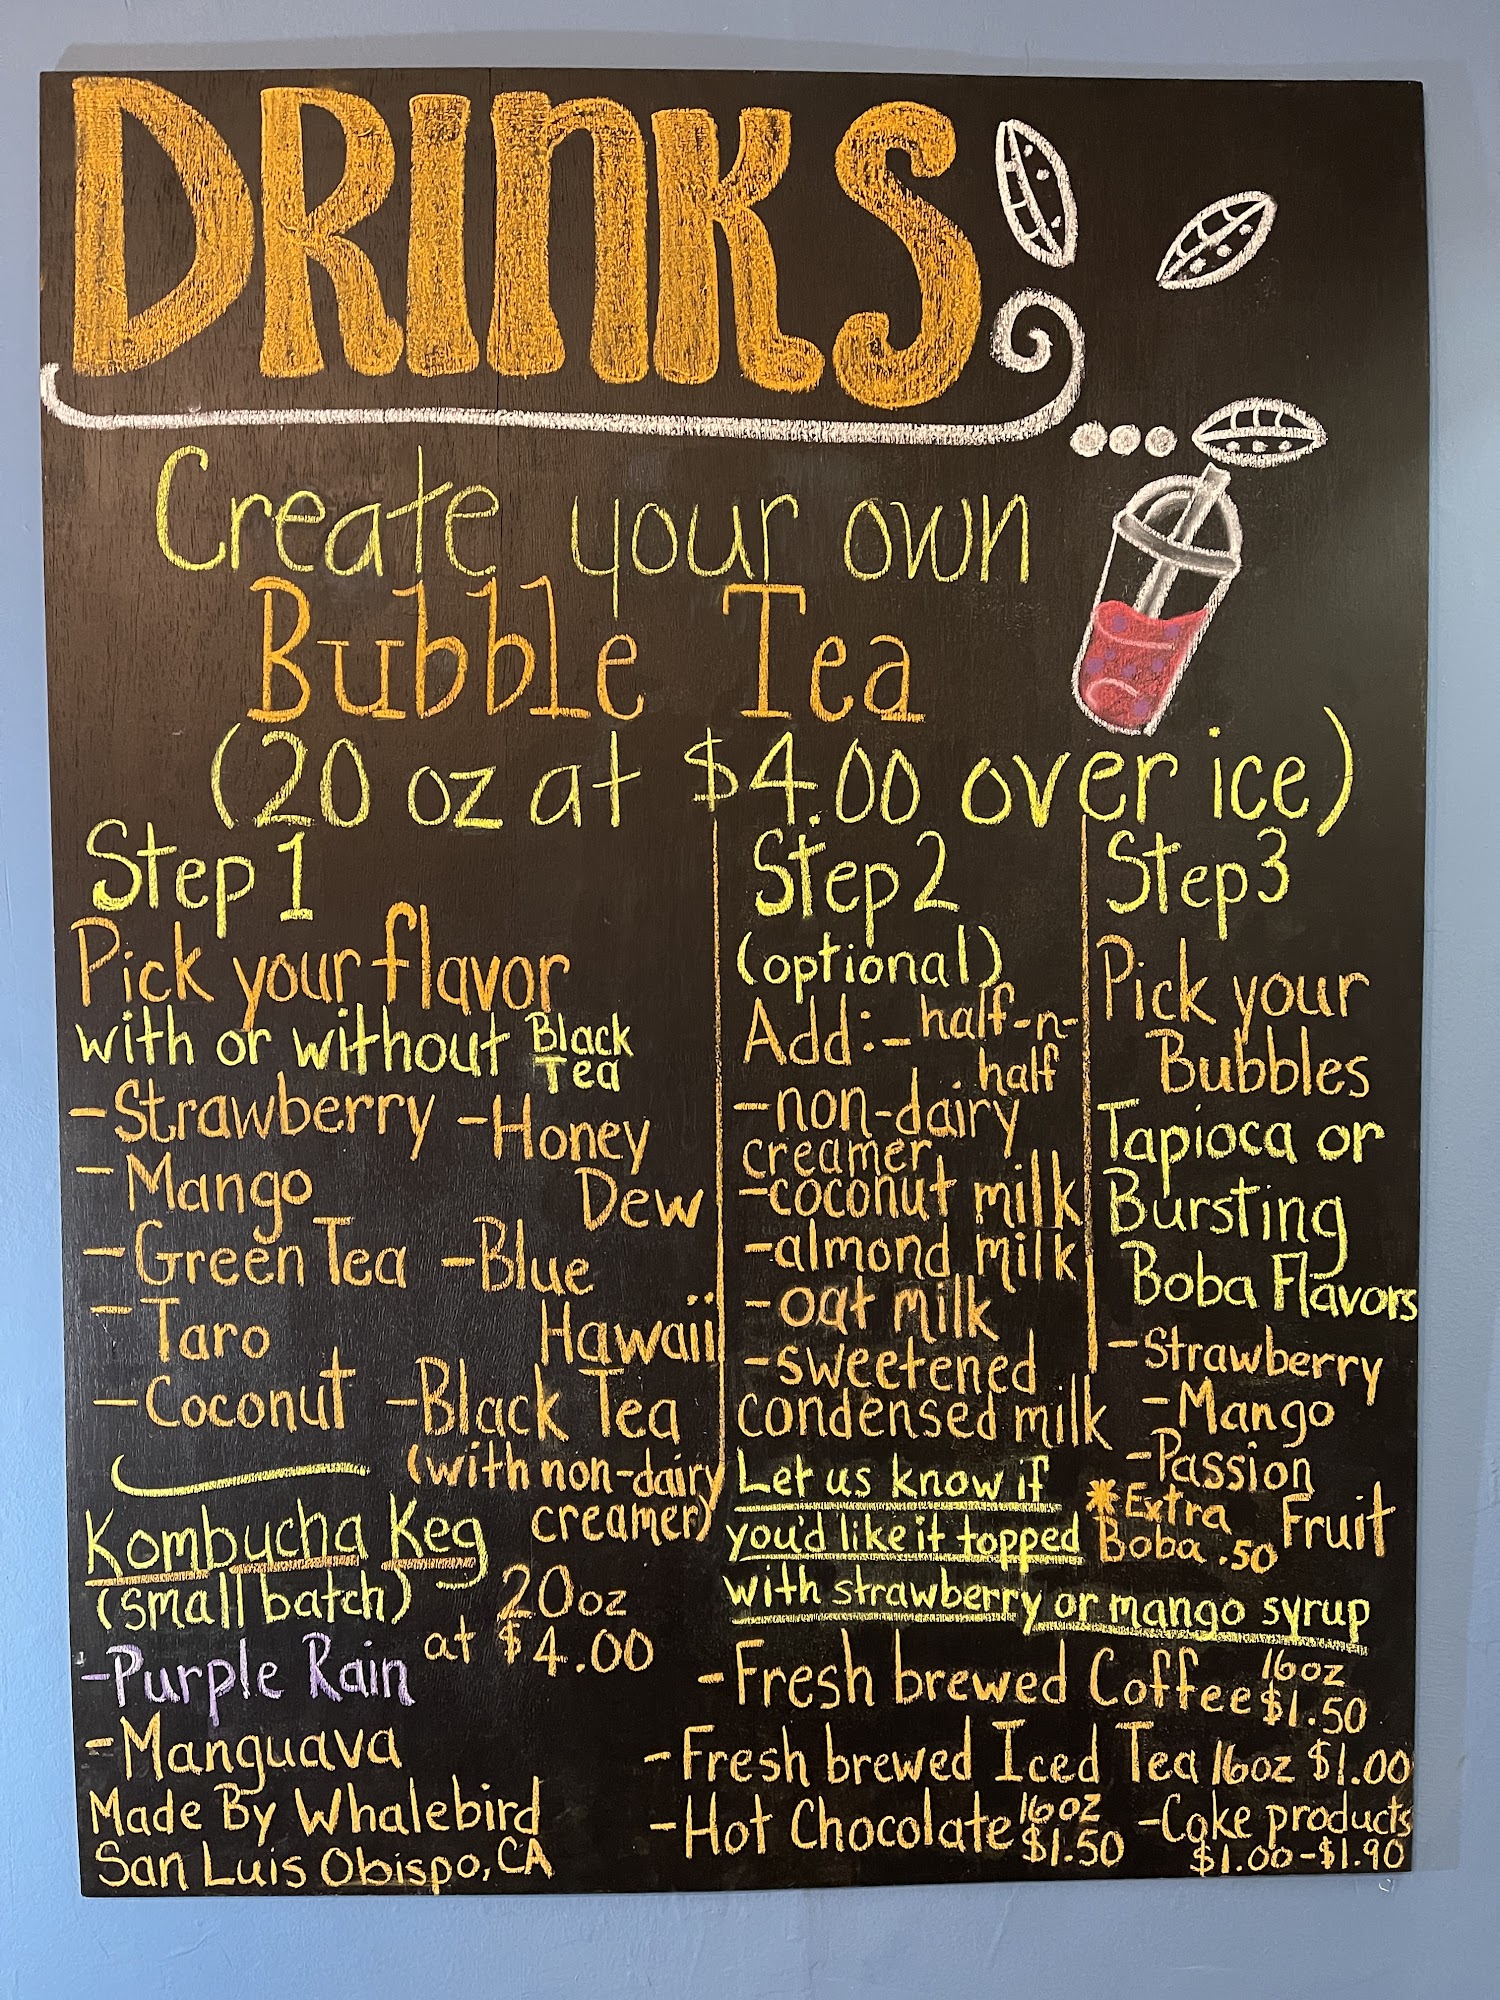 DRINKS
Create your own
Bubble Tea
(20 oz at $4.00 over ice)
Step 1
Pick your flavor
with or without Black Tea
-Strawberry
-Mango
-Green Tea
-Taro
-Coconut
-Honey
Dew
-Blue
Hawaii
-Black Tea
(with non-dairy
creamer)
Step 2
(optional)
Add:- half-n-
half
-non-dairy
creamer
-coconut milk
-almond milk
-oat milk
-sweetened
condensed milk
Let us know if
you'd like it topped
with strawberry or mango syrup
Step 3
Pick your
Bubbles
Tapioca or
Bursting
Boba Flavors
-Strawberry
-Mango
-Passion
Fruit
*Extra
Boba .50
Kombucha Keg
(small batch)
20oz
at $4.00
-Purple Rain
-Manguava
Made By Whalebird
San Luis Obispo, CA
-Fresh brewed Coffee 16oz $1.50
-Fresh brewed Iced Tea 16oz $1.00
-Hot Chocolate 16oz $1.50
-Coke products
$1.00-$1.90